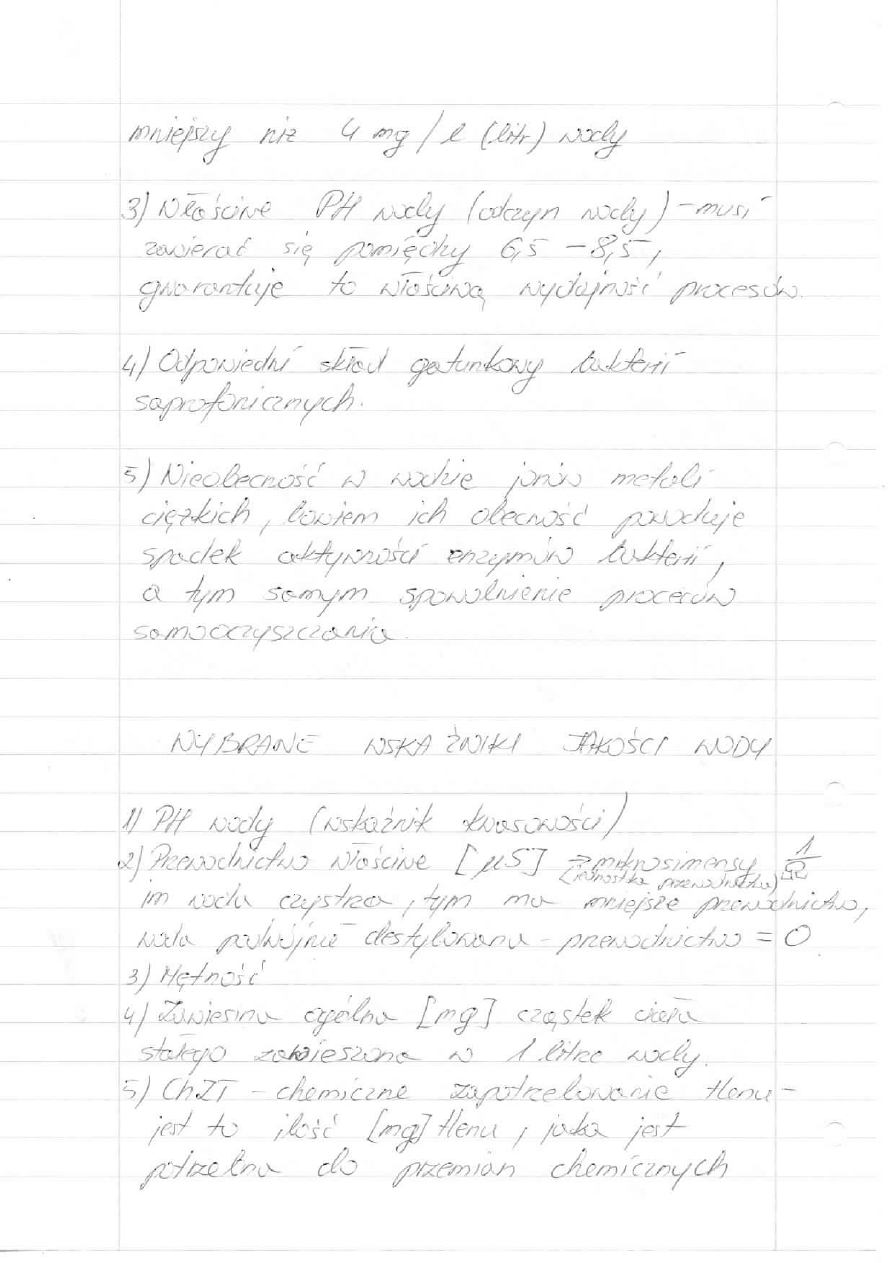 mniejszy niż 4 mg/l (litr) wody
3) Właściwe PH wody (odczyn wody) - musi
zawierać się pomiędzy 6,5 - 8,5,
gwarantuje to właściwą wydajność procesów.
4) Odpowiedni skład gatunkowy bakterii
saprofonicznych.
5) Nieobecność w wodzie jonów metali
ciężkich, bowiem ich obecność powoduje
spadek aktywności enzymów bakterii,
a tym samym spowolnienie procesów
samooczyszczania.
WYBRANE WSKAŹNIKI JAKOŚCI WODY
1) PH wody (wskaźnik kwasowości)
2) Przewodnictwo właściwe [μS] → mikrosimensy 1/Ω
(jednostka przewodnictwa)
im woda czystsza, tym ma mniejsze przewodnictwo,
woda podwójnie destylowana - przewodnictwo = 0
3) Mętność
4) Zawiesina ogólna [mg] cząstek ciała
stałego zawieszona w 1 litrze wody.
5) ChZT - chemiczne zapotrzebowanie tlenu -
jest to ilość [mg] tlenu, jaka jest
potrzebna do przemian chemicznych